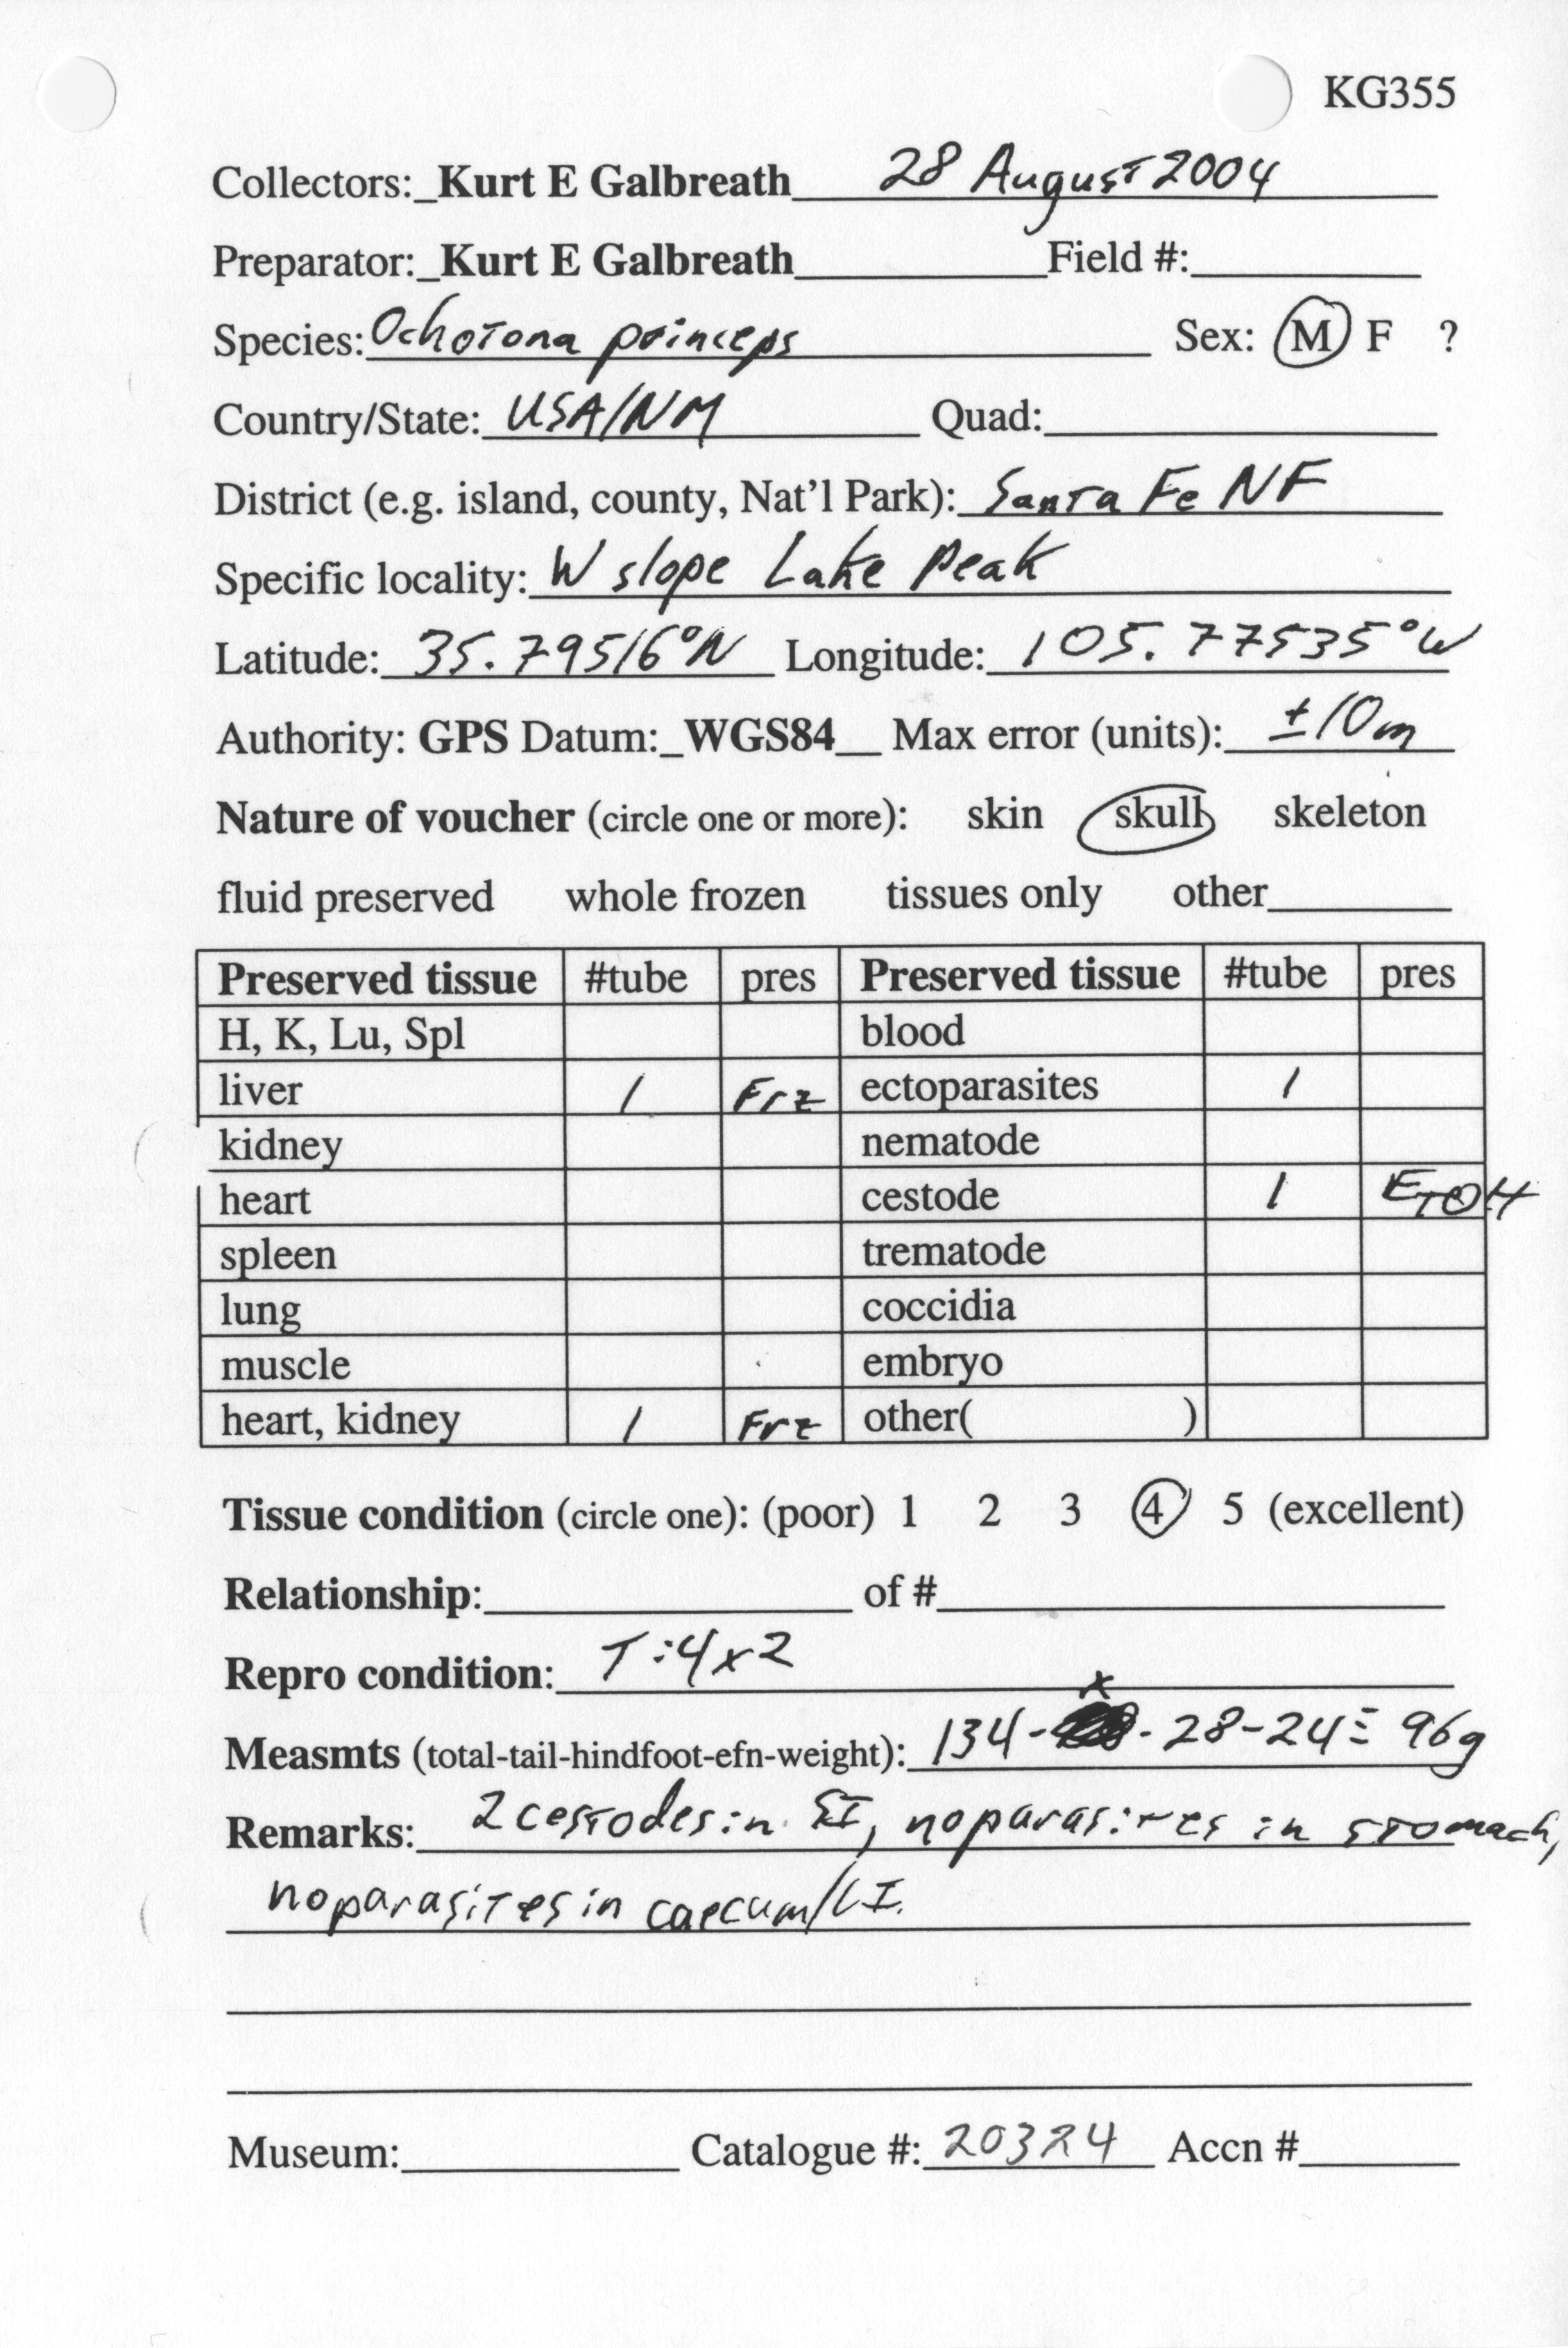 KG355
Collectors: Kurt E Galbreath 28 August 2004
Preparator: Kurt E Galbreath Field #:
Species: Ochotona princeps Sex: M F ?
Country/State: USA/NM Quad:
District (e.g. island, county, Nat'l Park): Santa Fe NF
Specific locality: W slope Lake Peak
Latitude: 35.79516°N Longitude: 105.77535°W
Authority: GPS Datum: WGS84 Max error (units): ±10m
Nature of voucher (circle one or more): skin skull skeleton
fluid preserved whole frozen tissues only other
Preserved tissue #tube pres Preserved tissue #tube pres
H, K, Lu, Spl blood
liver 1 Frz ectoparasites 1
kidney nematode
heart cestode 1 EtOH
spleen trematode
lung coccidia
muscle embryo
heart, kidney 1 Frz other( )
Tissue condition (circle one): (poor) 1 2 3 4 5 (excellent)
Relationship: of #
Repro condition: T:4x2
Measmts (total-tail-hindfoot-efn-weight): 134-x-28-24≡96g
Remarks: 2 cestodes in SI, no parasites in stomach,
no parasites in caecum/LI.
Museum: Catalogue #: 20324 Accn #